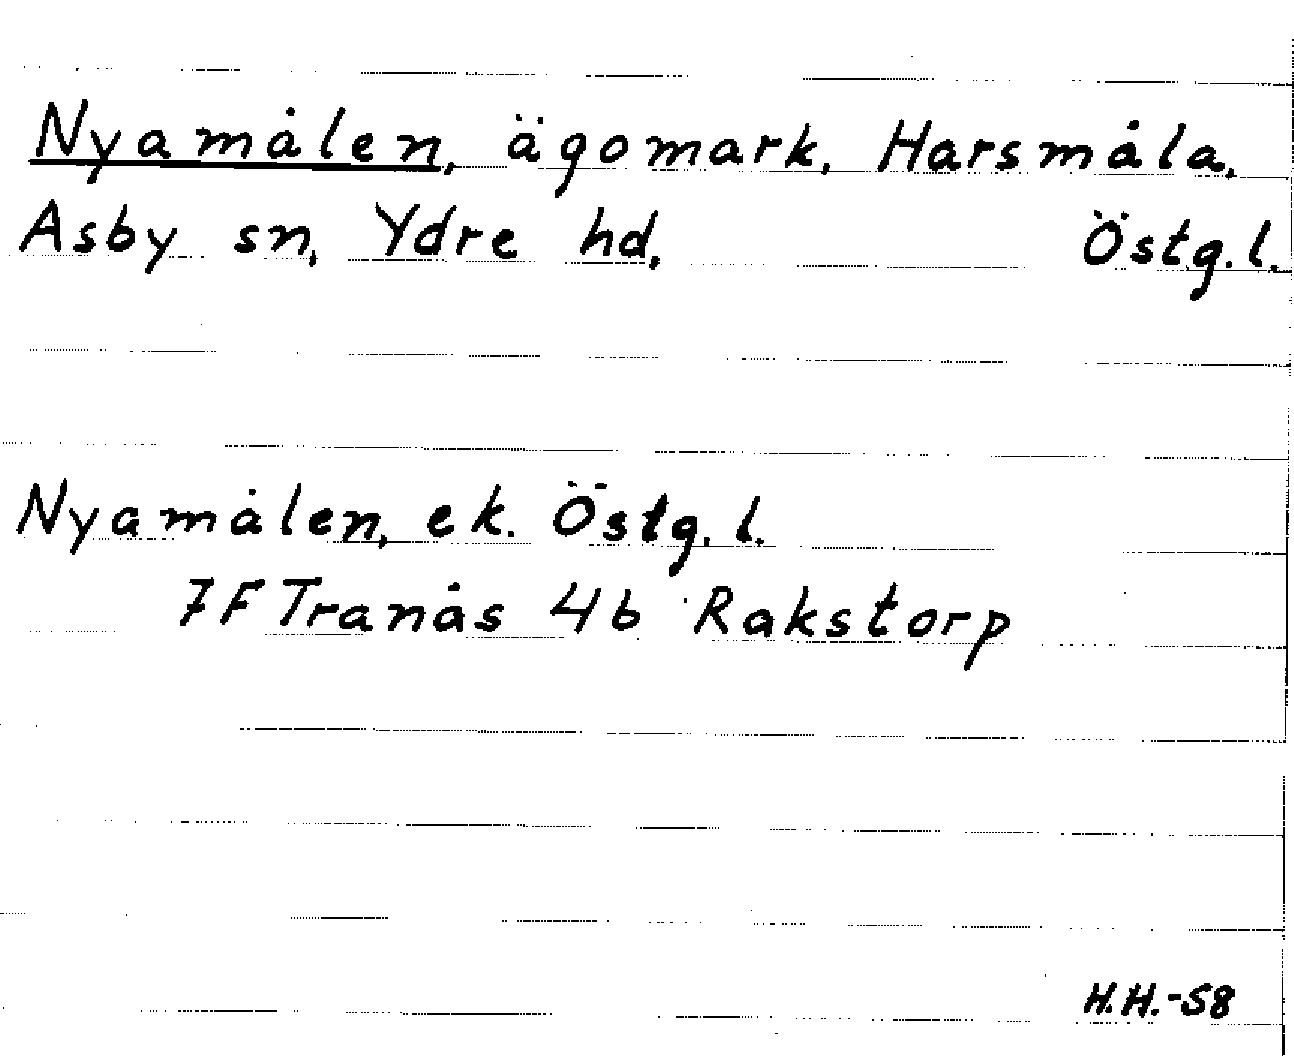 Nyamålen, ägomark, Harsmåla,
Asby sn, Ydre hd, Östg. l.
Nyamålen, ek. Östg. l.
7F Tranås 4b Rakstorp
H.H.-58